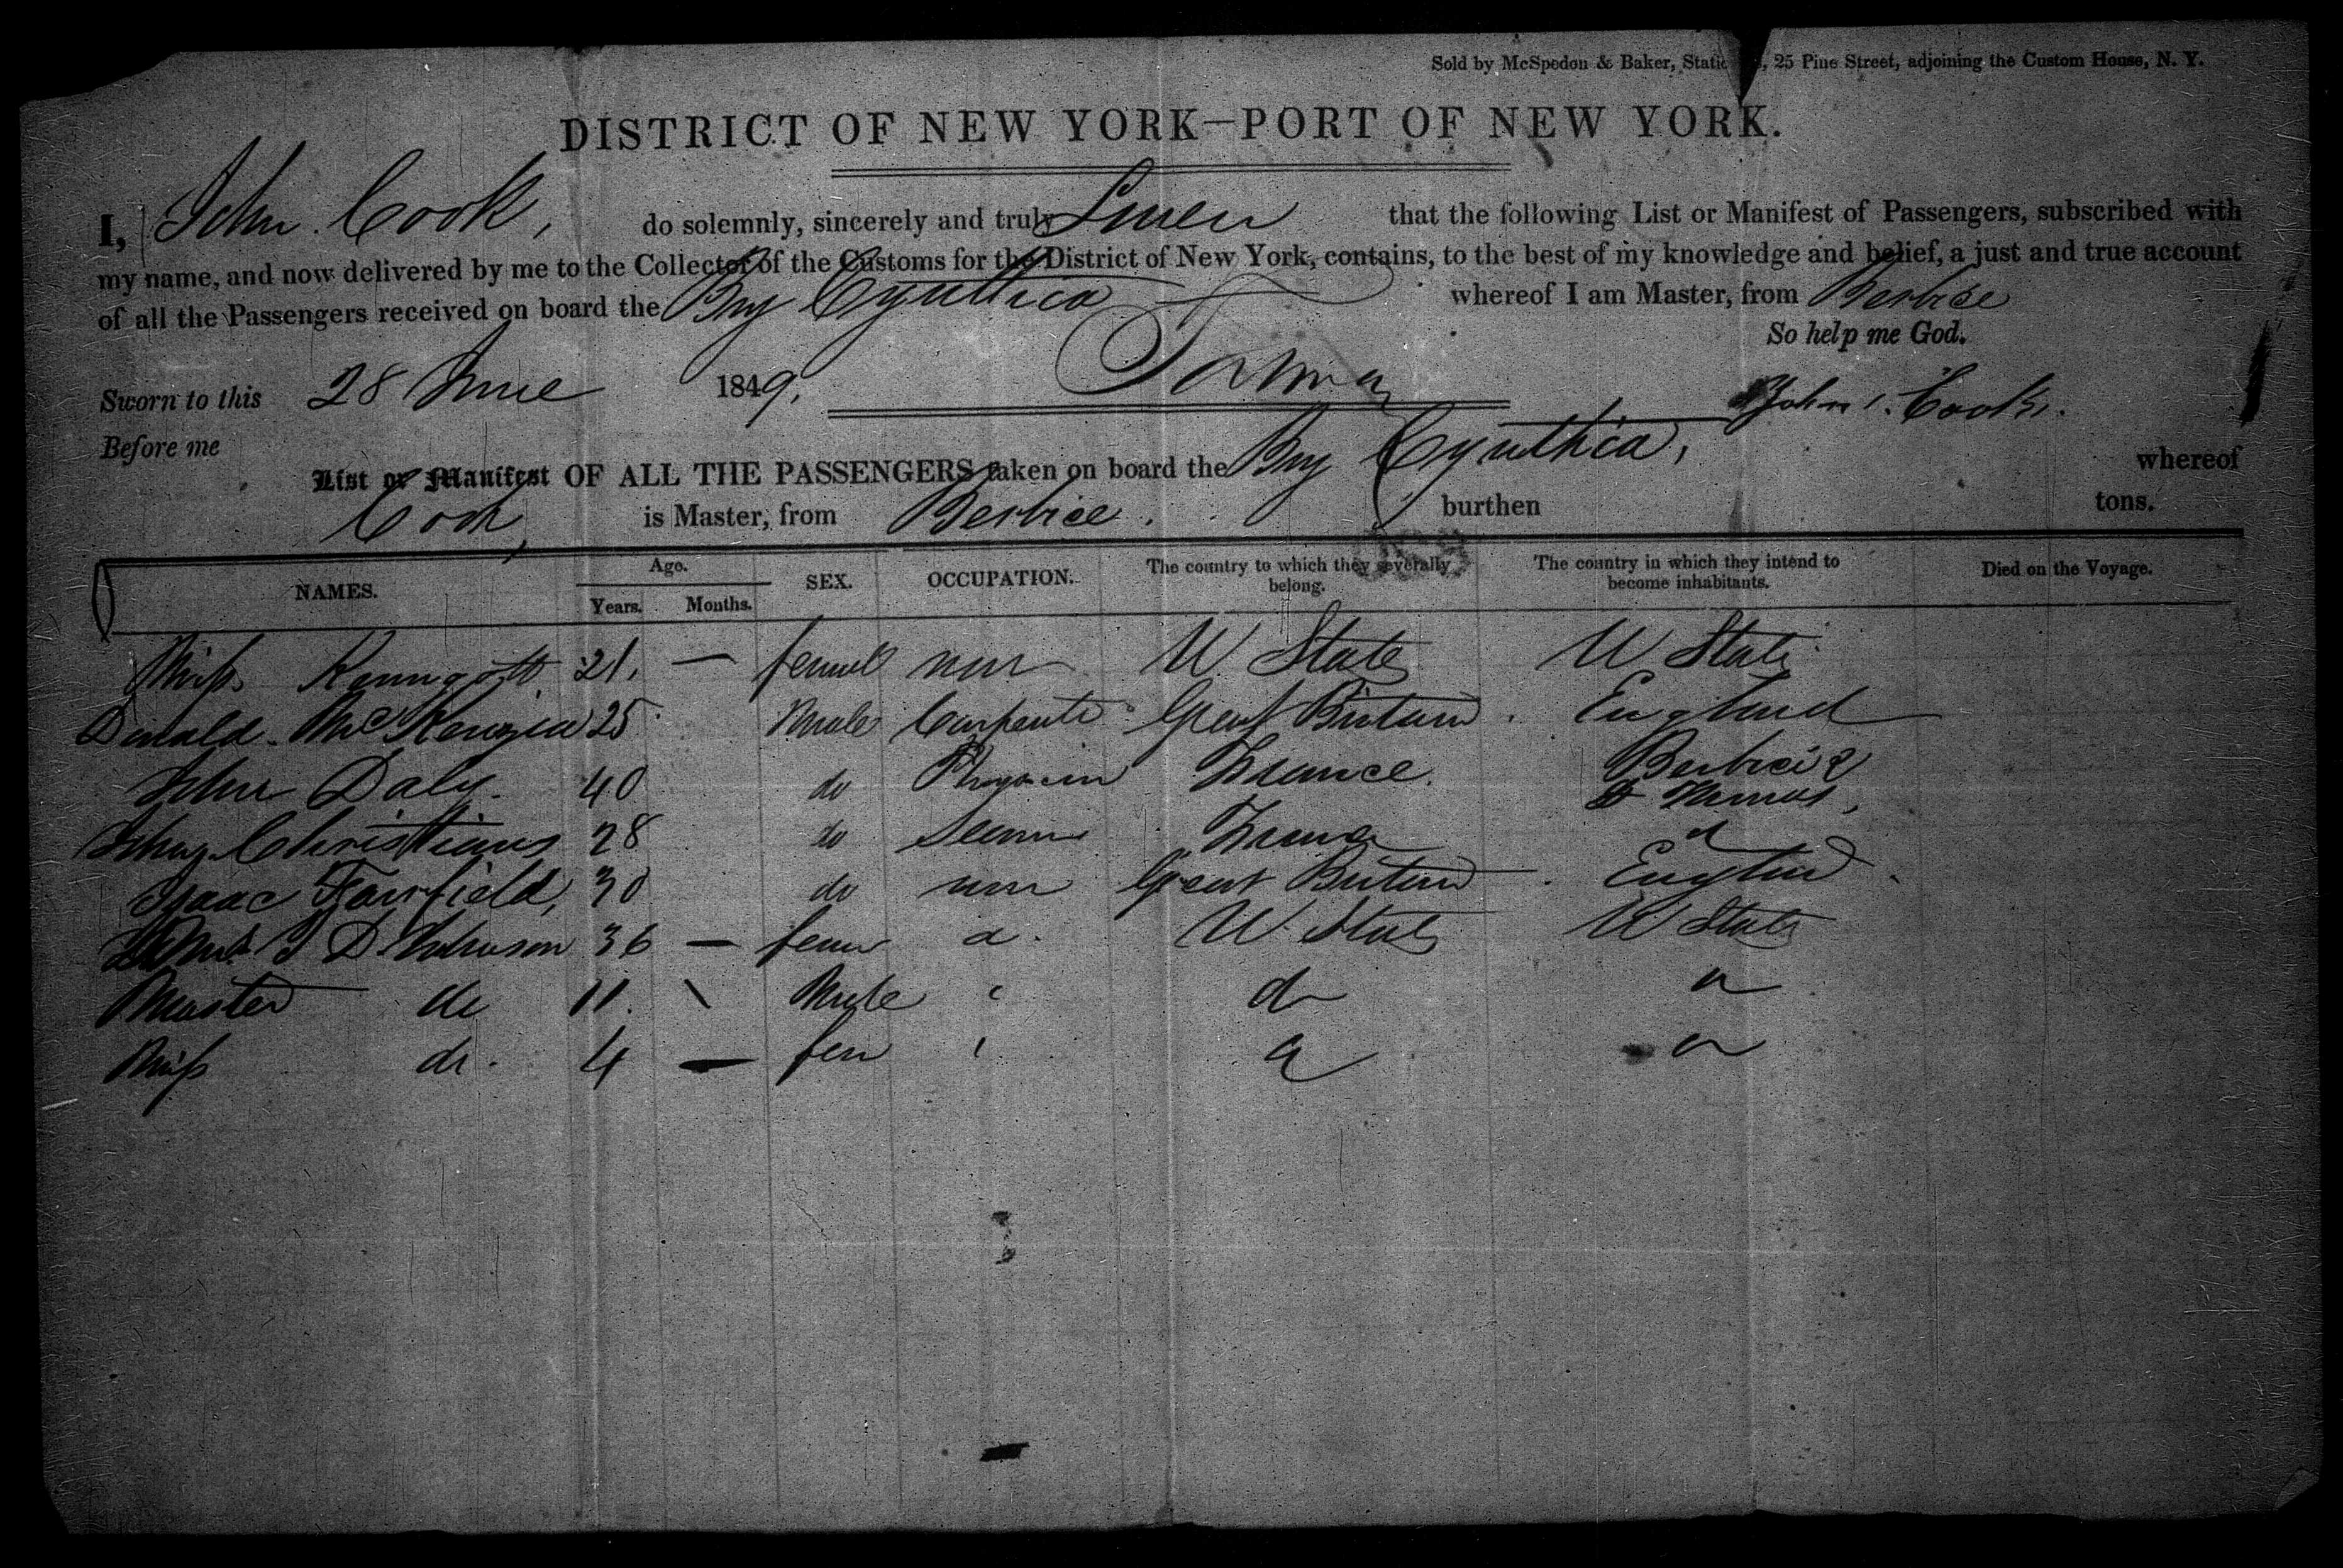 Sold by McSpedon & Baker, Static, 25 Pine Street, adjoining the Custom House, N. Y.
DISTRICT OF NEW YORK—PORT OF NEW YORK.
I, John Cook, do solemnly, sincerely and truly Swear that the following List or Manifest of Passengers, subscribed with
my name, and now delivered by me to the Collector of the Customs for the District of New York, contains, to the best of my knowledge and belief, a just and true account
of all the Passengers received on board the Brig Cynthia whereof I am Master, from Berbice
So help me God.
Sworn to this 28 June 1849.
John Cook.
Before me
List or Manifest OF ALL THE PASSENGERS taken on board the Brig Cynthia, whereof
Cook, is Master, from Berbice. burthen tons.
NAMES. Age. Years. Months. SEX. OCCUPATION. The country to which they severally belong. The country in which they intend to become inhabitants. Died on the Voyage.
Miss 21. — female U States U States
Donald McKenzie 25 Male Carpenter Great Britain. England
John Daly. 40 do Physician France. Berbice &
St Thomas,
Christians 28 do France
Isaac Fairfield, 30 do Great Britain England
Mrs J D 36 — U States U States
Master do 11 \ Male do
Miss do. 4 — fem